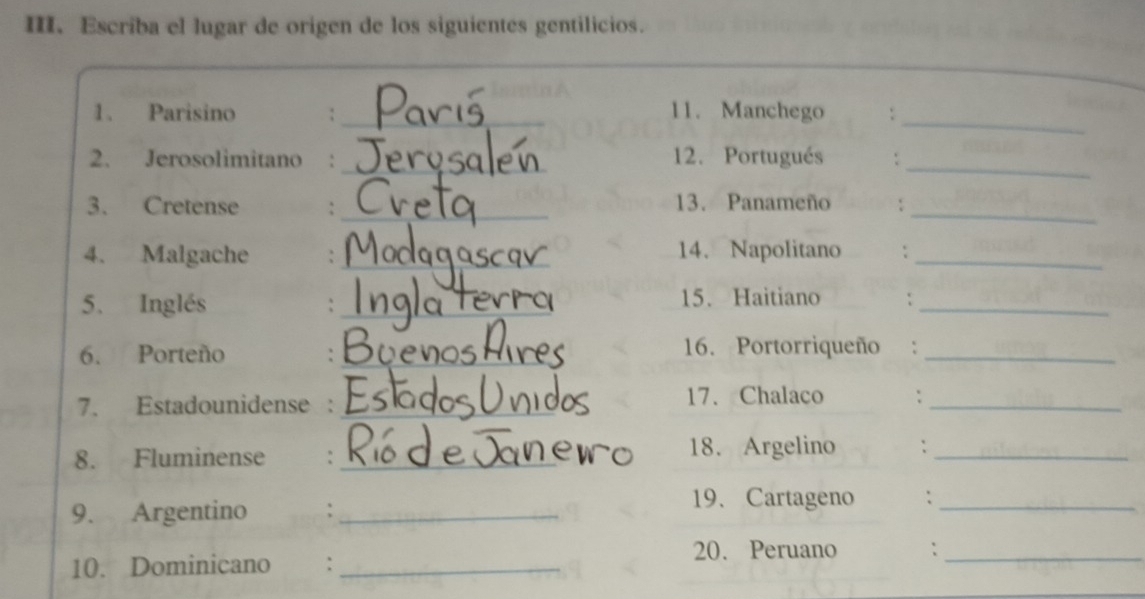 III. Escriba el lugar de origen de los siguientes gentilicios.
1. Parisino : París
2. Jerosolimitano : Jerusalén
3. Cretense : Creta
4. Malgache : Madagascar
5. Inglés : Inglaterra
6. Porteño : Buenos Aires
7. Estadounidense : Estados Unidos
8. Fluminense : Río de Janeiro
9. Argentino :
10. Dominicano :
11. Manchego :
12. Portugués :
13. Panameño :
14. Napolitano :
15. Haitiano :
16. Portorriqueño :
17. Chalaco :
18. Argelino :
19. Cartageno :
20. Peruano :